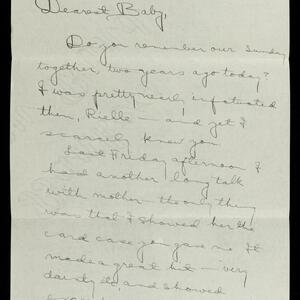 Dearest Baby,
Do you remember our Sunday
together, two years ago today?
I was pretty nearly infatuated
then, Rielle — and yet I
scarcely knew you
Last Friday afternoon I
had another long talk
with mother — the only thing
was that I showed her the
card case you gave me. It
made a great hit — "very
dainty", and showed